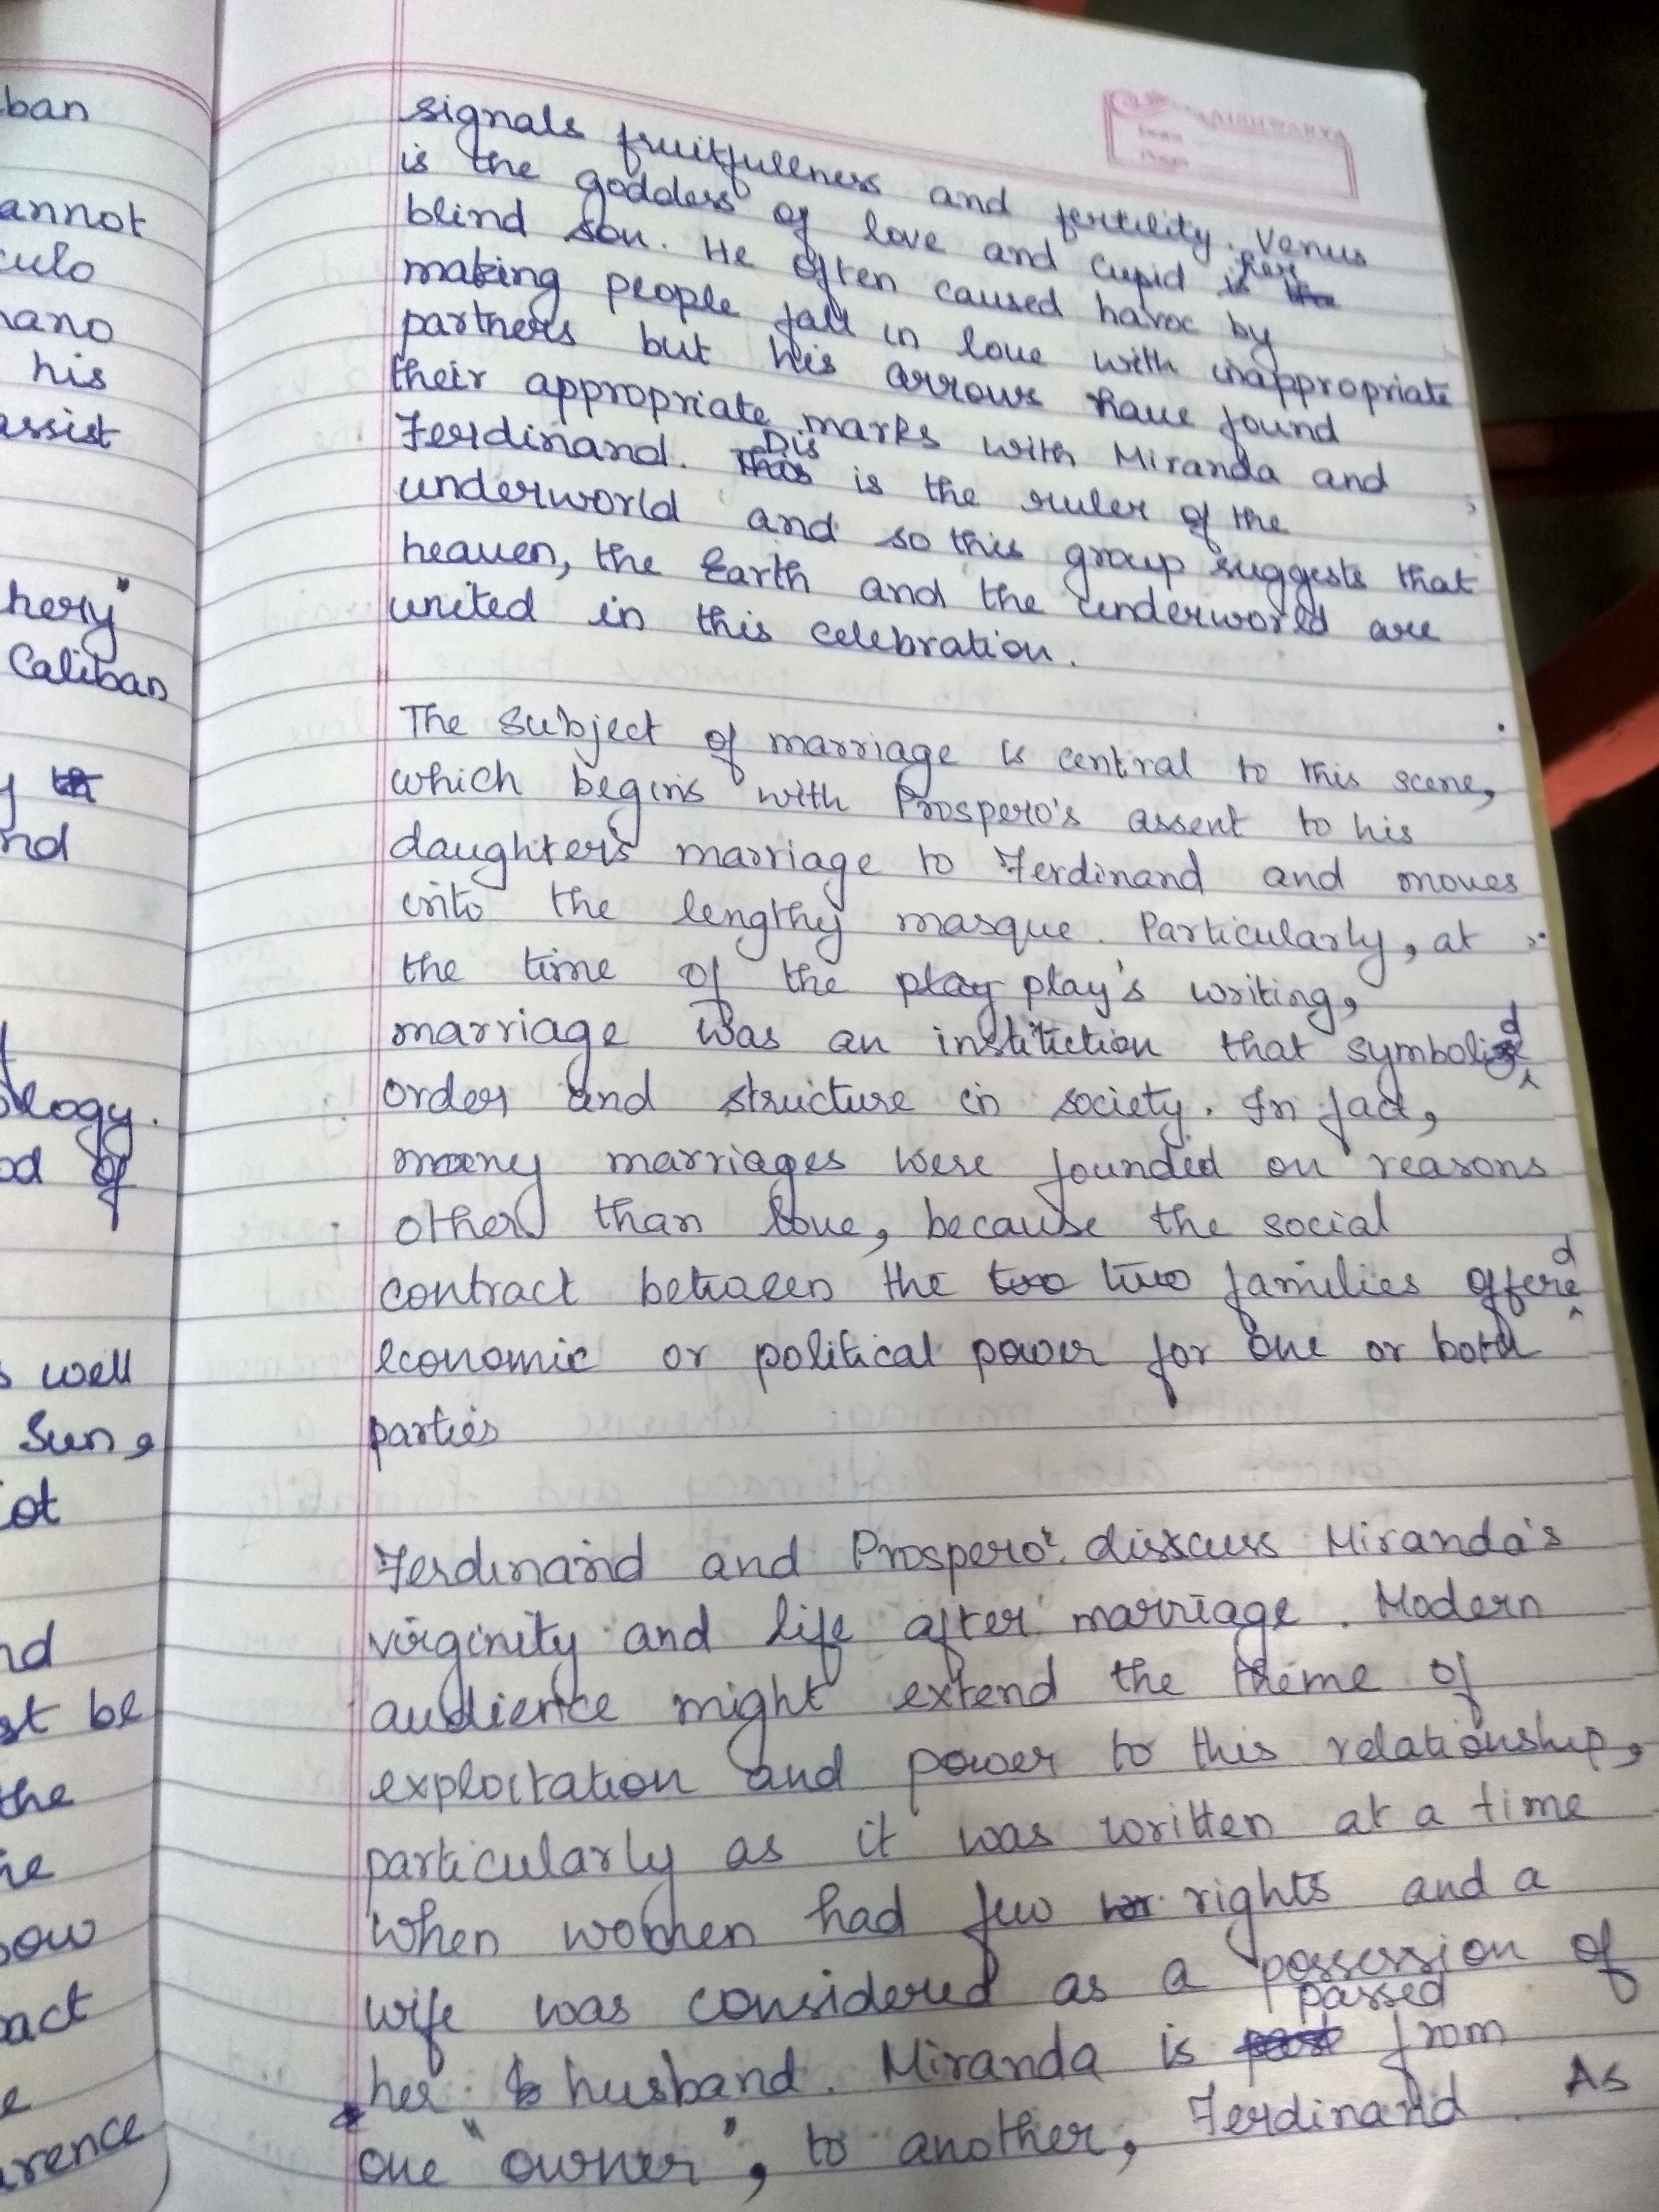 ban
annot
culo
nano
his
assist
hery"
Caliban
nd
ology.
od of
s well
Sun,
ot
nd
st be
the
he
ow
act
e
rence
AISHWARYA
signals fruitfullness and fertility. Venus
is the goddess of love and Cupid is her
blind son. He often caused havoc by
making people fall in love with inappropriate
partners but his arrows have found
their appropriate marks with Miranda and
Ferdinand. Dis is the ruler of the
underworld and so this group suggests that
heaven, the Earth and the underworld are
united in this celebration.
The subject of marriage is central to this scene,
which begins with Prospero's assent to his
daughter's marriage to Ferdinand and moves
into the lengthy masque. Particularly, at
the time of the play play's writing,
marriage was an institiction that symbolized
order and structure in society. In fact,
many marriages were founded on reasons
other than love, because the social
contract between the two two families offered
economic or political power for one or both
parties
Ferdinand and Prospero discuss Miranda's
virginity and life after marriage. Modern
audience might extend the theme of
exploitation and power to this relationship,
particularly as it was written at a time
when women had few rights and a
wife was considered as a possession of
her husband. Miranda is passed from
one "owner", to another, Ferdinand. As